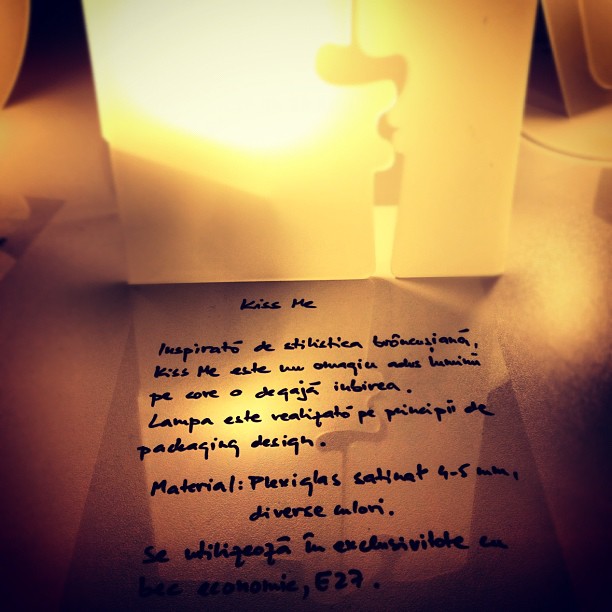 Kiss Me
Inspirată de stilistica brâncușiană,
Kiss Me este un omagiu adus luminii
pe care o degajă iubirea.
Lampa este realizată pe principii de
packaging design.
Material: Plexiglas satinat 4-5 mm,
diverse culori.
Se utilizează în exclusivitate cu
bec economic, E27.